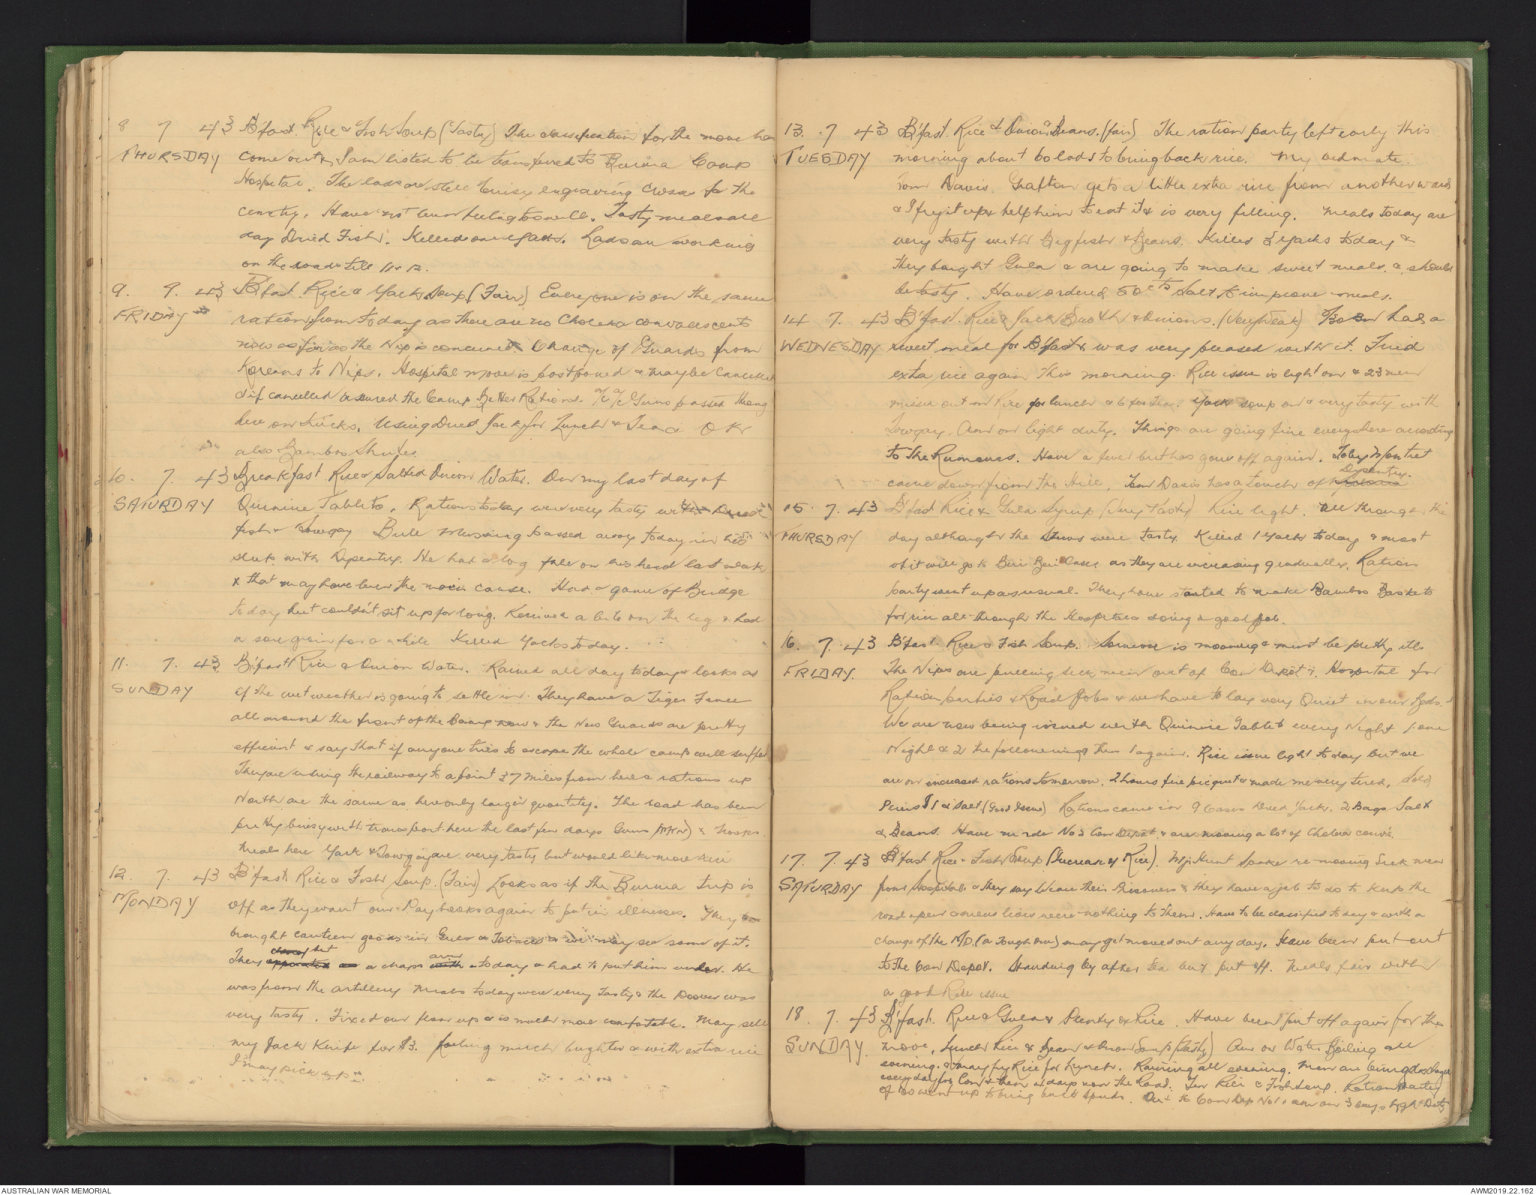 8 7 43 B'fast. Rice & Fish Soup (Tasty) The classification for the move has
THURSDAY come out & I am listed to be transferred to Burma Camp
Hospital. The lads are still busy engraving crosses for the
cemetry. Have not been feeling too well. Tasty meals all
day Dried Fish. Killed one Yak. Lads are working
on the road till 11 & 12.
9. 7. 43 B'fast Rice & Yak Soup (Fair) Everyone is on the same
FRIDAY rations from today as there are no Cholera convalescents
now as far as the Nip is concerned. Change of Guards from
Koreans to Nips. Hospital move is postponed & maybe cancelled
& if cancelled the Camp Better Rations Guns passed through
here on trucks. Using Dried Yak for Lunch & Tea & O Kr
also Bamboo Shutes.
10. 7. 43 Breakfast Rice & Salted Onion Water. On my last day of
SATURDAY Quinine Tablets. Rations today were very tasty with dried
fish & Towgay Bill passed away today in his
sleep with Dysentry. He had a log fall on his head last week
& that may have been the main cause. Had a game of Bridge
today but couldn't sit up for long. Received a bite on the leg & had
a sore groin for a while Killed Yacks today.
11. 7. 43 B'fast Rice & Onion Water. Rained all day today & looks as
SUNDAY if the wet weather is going to settle in. They have a Tiger Fence
all around the front of the Camp now & the New Guards are pretty
efficient & say that if anyone tries to escape the whole camp will suffer
They are using the railway to a point 37 miles from here & rations up
North are the same as here only larger quantity. The road has been
pretty busy with transport here the last few days Guns & troops.
Meals here Yack & Towgay are very tasty but would like more rice
12. 7. 43 B'fast Rice & Fish Soup. (Fair) Looks as if the Burma trip is
MONDAY off as they want our Paybooks again to put in illnesses. They
brought canteen goods in Gula & Tobacco & we may see some of it.
They a chaps arm today & had to put him under. He
was from the artillery Meals today were very Tasty & the Doover was
very tasty. Fixed our floor up & is much more comfortable. May sell
my Jack Knife for $3. Feeling much brighter & with extra rice
I may pick up.
13. 7 43 B'fast. Rice & Onion Beans. (fair) The ration party left early this
TUESDAY morning about 60 lads to bring back rice. My bedmate
Tom Davis. Grafton gets a little extra rice from another ward
& I fry it up & help him to eat it & is very filling. Meals today are
very tasty with Dry fish & Beans. Killed 2 yacks today &
they bought Gula & are going to make sweet meals & should
be tasty. Have ordered 50 cts Salt to improve meals.
14 7. 43 B'fast. Rice & Jack Broth & Onions. (Very Weak) Had a
WEDNESDAY sweet meal for B'fast & was very pleased with it. Fried
extra rice again this morning. Rice issue is light on & 23 men
missed out on Rice for lunch & 6 for Tea. Yack soup on & very tasty with
Towgay. Am on light duty. Things are going fine everywhere according
to the Rumours. Have a fever but has gone off again. Toby Montret
came down from the Hill. Tom Davis has a touch of Dysentry.
15. 7. 43 B'fast Rice & Gula Syrup (Very Tasty) Rice light. all through the
THURSDAY day although the Stews were tasty. Killed 1 Yack today & most
of it will go to Beri Beri Cases as they are increasing gradually. Ration
party went up as usual. They have started to make Bamboo Baskets
for rice all through the Hospital & doing a good job.
16. 7. 43 B'fast Rice & Fish Soup. Someone is moving & must be pretty ill.
FRIDAY. The Nips are pulling sick men out of Con Depot & Hospital for
Ration parties & Road Jobs & we have to lay very Quiet in our Beds.
We are now being issued with Quinine Tablets every Night 1 one
Night & 2 the following then 1 again. Rice issue light today but we
are on increased rations tomorrow. 2 hours fire picquet & made me very tired. Sold
Penis $1 & Salt (Good Issue) Rations came in 9 Cases Dried Yack. 2 Bags Salt
& Beans. Have made No 3 Con Depot & are moving a lot of Cholera convs.
17. 7. 43 B'fast Rice & Fish Soup (Increase of Rice). Maj Hunt spoke re moving Sick men
SATURDAY from Hospital & they say We are their Prisoners & they have a job to do to keep the
road open & our lives were nothing to them. Have to be classified today & with a
change of the MO. (a Tough One) may get moved out any day. Have been put out
to the Con Depot. Standing by after tea but put off. Meals fair with
a good Rice issue
18. 7. 43 B'fast. Rice Gula & Plenty of Rice. Have been put off again for the
SUNDAY. move. Lunch Rice & Bean & Onion Soup (tasty) Am on Water Boiling all
evening & may fry Rice for Lunch. Raining all evening. Men are being discharged
everyday for Con & then a days work on the Road. Tea Rice & Fish Soup. Ration party
of 60 went up to bring back spuds. Out to Con Dep No 1 & am on 3 days Light Duty
AUSTRALIAN WAR MEMORIAL
AWM2019.22.162